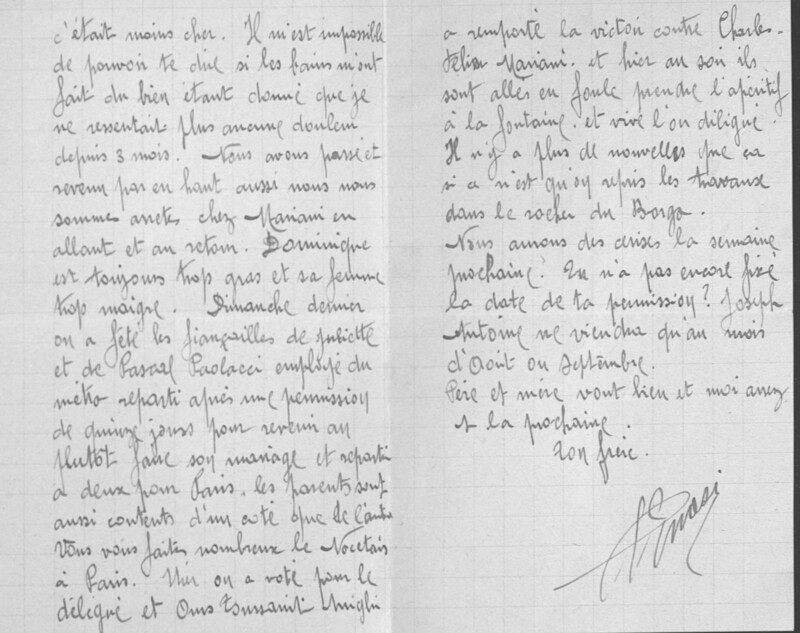 c'était moins cher. Il m'est impossible
de pouvoir te dire si les bains m'ont
fait du bien étant donné que je
ne ressentait plus aucune douleur
depuis 3 mois. Nous avons passé et
revenu par en haut aussi nous nous
somme arretés chez Mariani en
allant et au retour. Dominique
est toujours trop gras et sa femme
trop maigre. Dimanche dernier
on a fêté les fiançailles de Juliette
et de Pascal Paolacci employé du
métro reparti après une permission
de quinze jours pour revenir au
pluttot faire son mariage et repartir
à deux pour Paris. les parents sont
aussi contents d'un coté que de l'autre
Vous vous faites nombreux le Nocetais
à Paris. Hier on a voté pour le
délégué et Ours Toussaint
a remporté la victoir contre Charles-
Félix Mariani. et hier au soir ils
sont allés en foule prendre l'apéritif
à la fontaine. et vive l'on délégué.
Il n'y a plus de nouvelles que ca
si ce n'est qu'on repris les travaux
dans le rocher du Borgo.
Nous aurons des cerises la semaine
prochaine. En n'a pas encore fixé
la date de ta permission? Joseph
Antoine ne viendra qu'au mois
d'Aoit ou septembre.
Père et mère vont bien et moi assez
A la prochaine.
Ton frère.